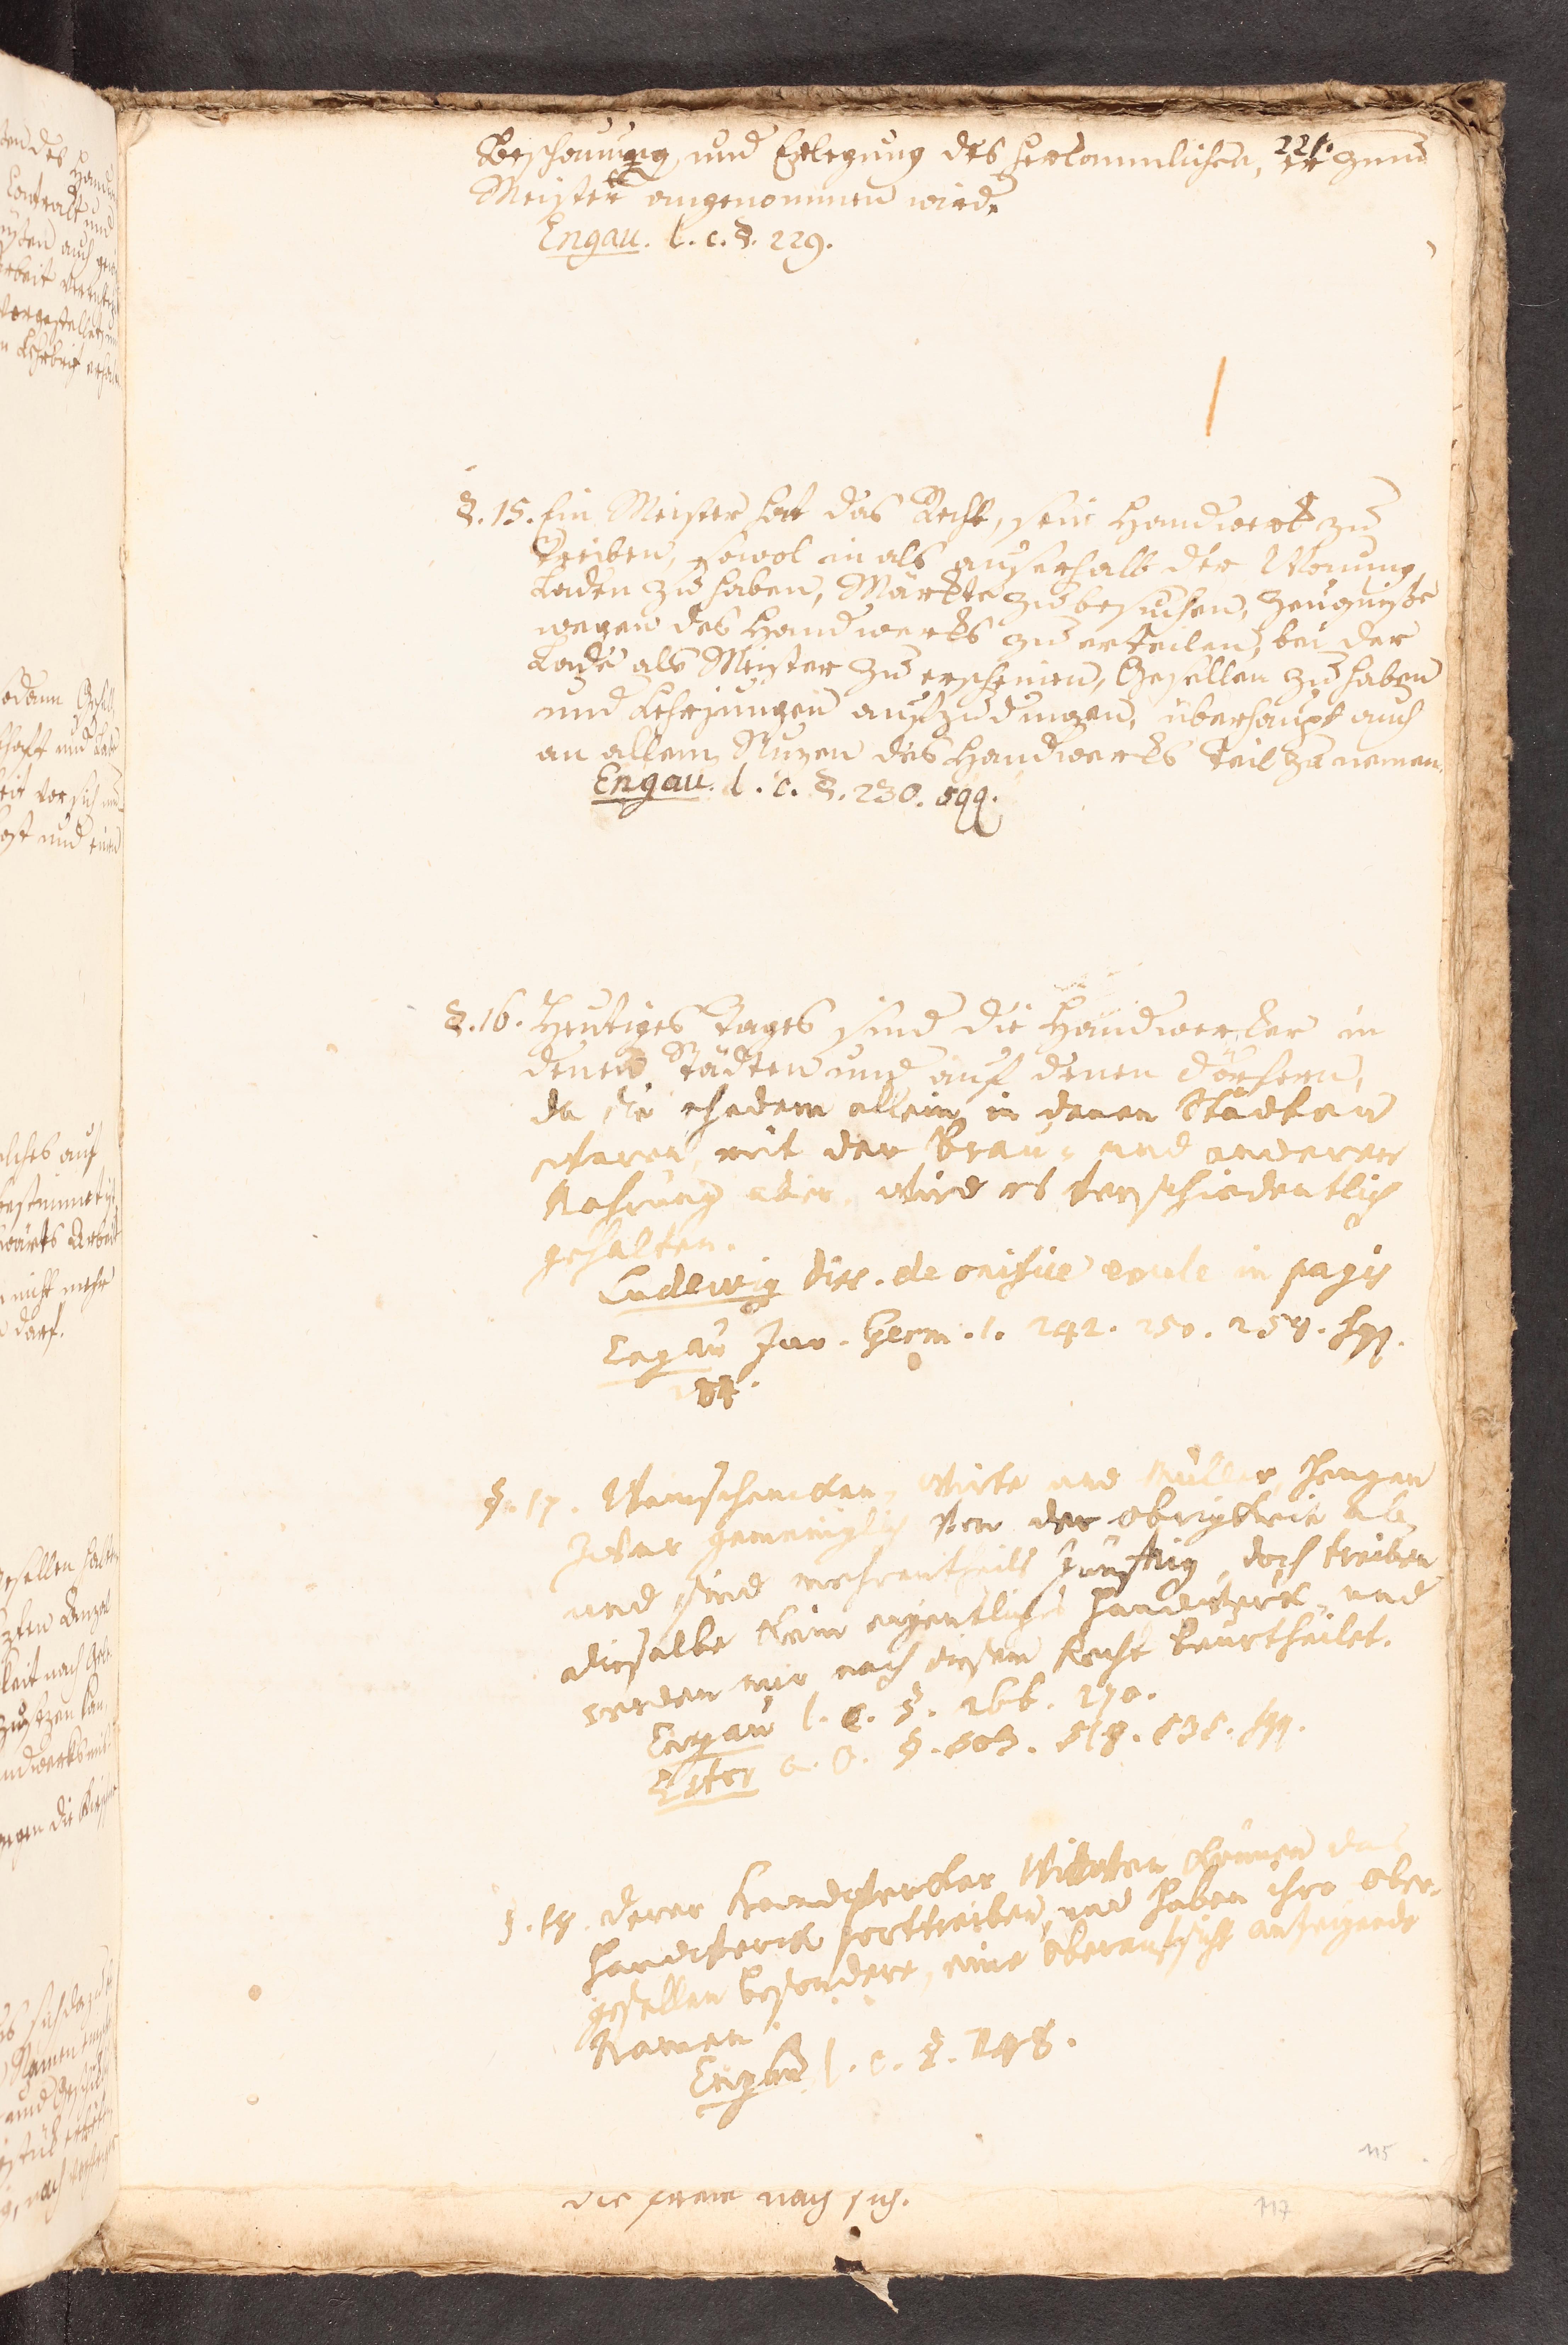 221.
Beschauung, und Erlegung des herkommlichen, er zum
Meister angenommen wird.
Engau. l. c. §. 229.
§. 15. Ein Meister hat das Recht, sein Handwerk zu
treiben, sowol in als auserhalb der Wonung
Laden zu haben, Märkte zu besuchen, Zeugniße
wegen des Handwerks zu erteilen, bei der
Lade als Meister zu erscheinen, Gesellen zu haben
und Lehrjungen aufzudingen, überhaupt auch
an allem Nuzen des Handwerks teil zu nemen.
Engau. l. c. §. 230. sqq.
§. 16. Heutiges Tages sind die Handwerker in
denen Städten und auf denen Dörfern,
da sie ehedem allein in denen Städten
waren, mit der Brau- und anderer
Nahrung aber, wird es verschiedentlich
gehalten.
Ludewig diss. de opifice exule in pagis
Engau Jur. Germ. 1. 242. 250. 254. sqq.
§. 17. Weinschencken, Wirte und Müller, hangen
zwar gemeiniglich von der Obrigkeit ab,
und sind mehrentheils zünftig, doch treiben
dieselbe kein eigentliches Handwerck, und
werden nur nach diesem Recht beurtheilet.
Engau l. c. §. 266. 270.
Estor a. O. §. 503. 518. 535. sqq.
§. 18. Derer Handwercker Wittwen können das
Handwerck forttreiben, und haben ihre Ober-
gesellen besondere, eine Oberaufsicht anzeigende
Namen.
Engau l. c. §. 248.
115
die nach sich.
117